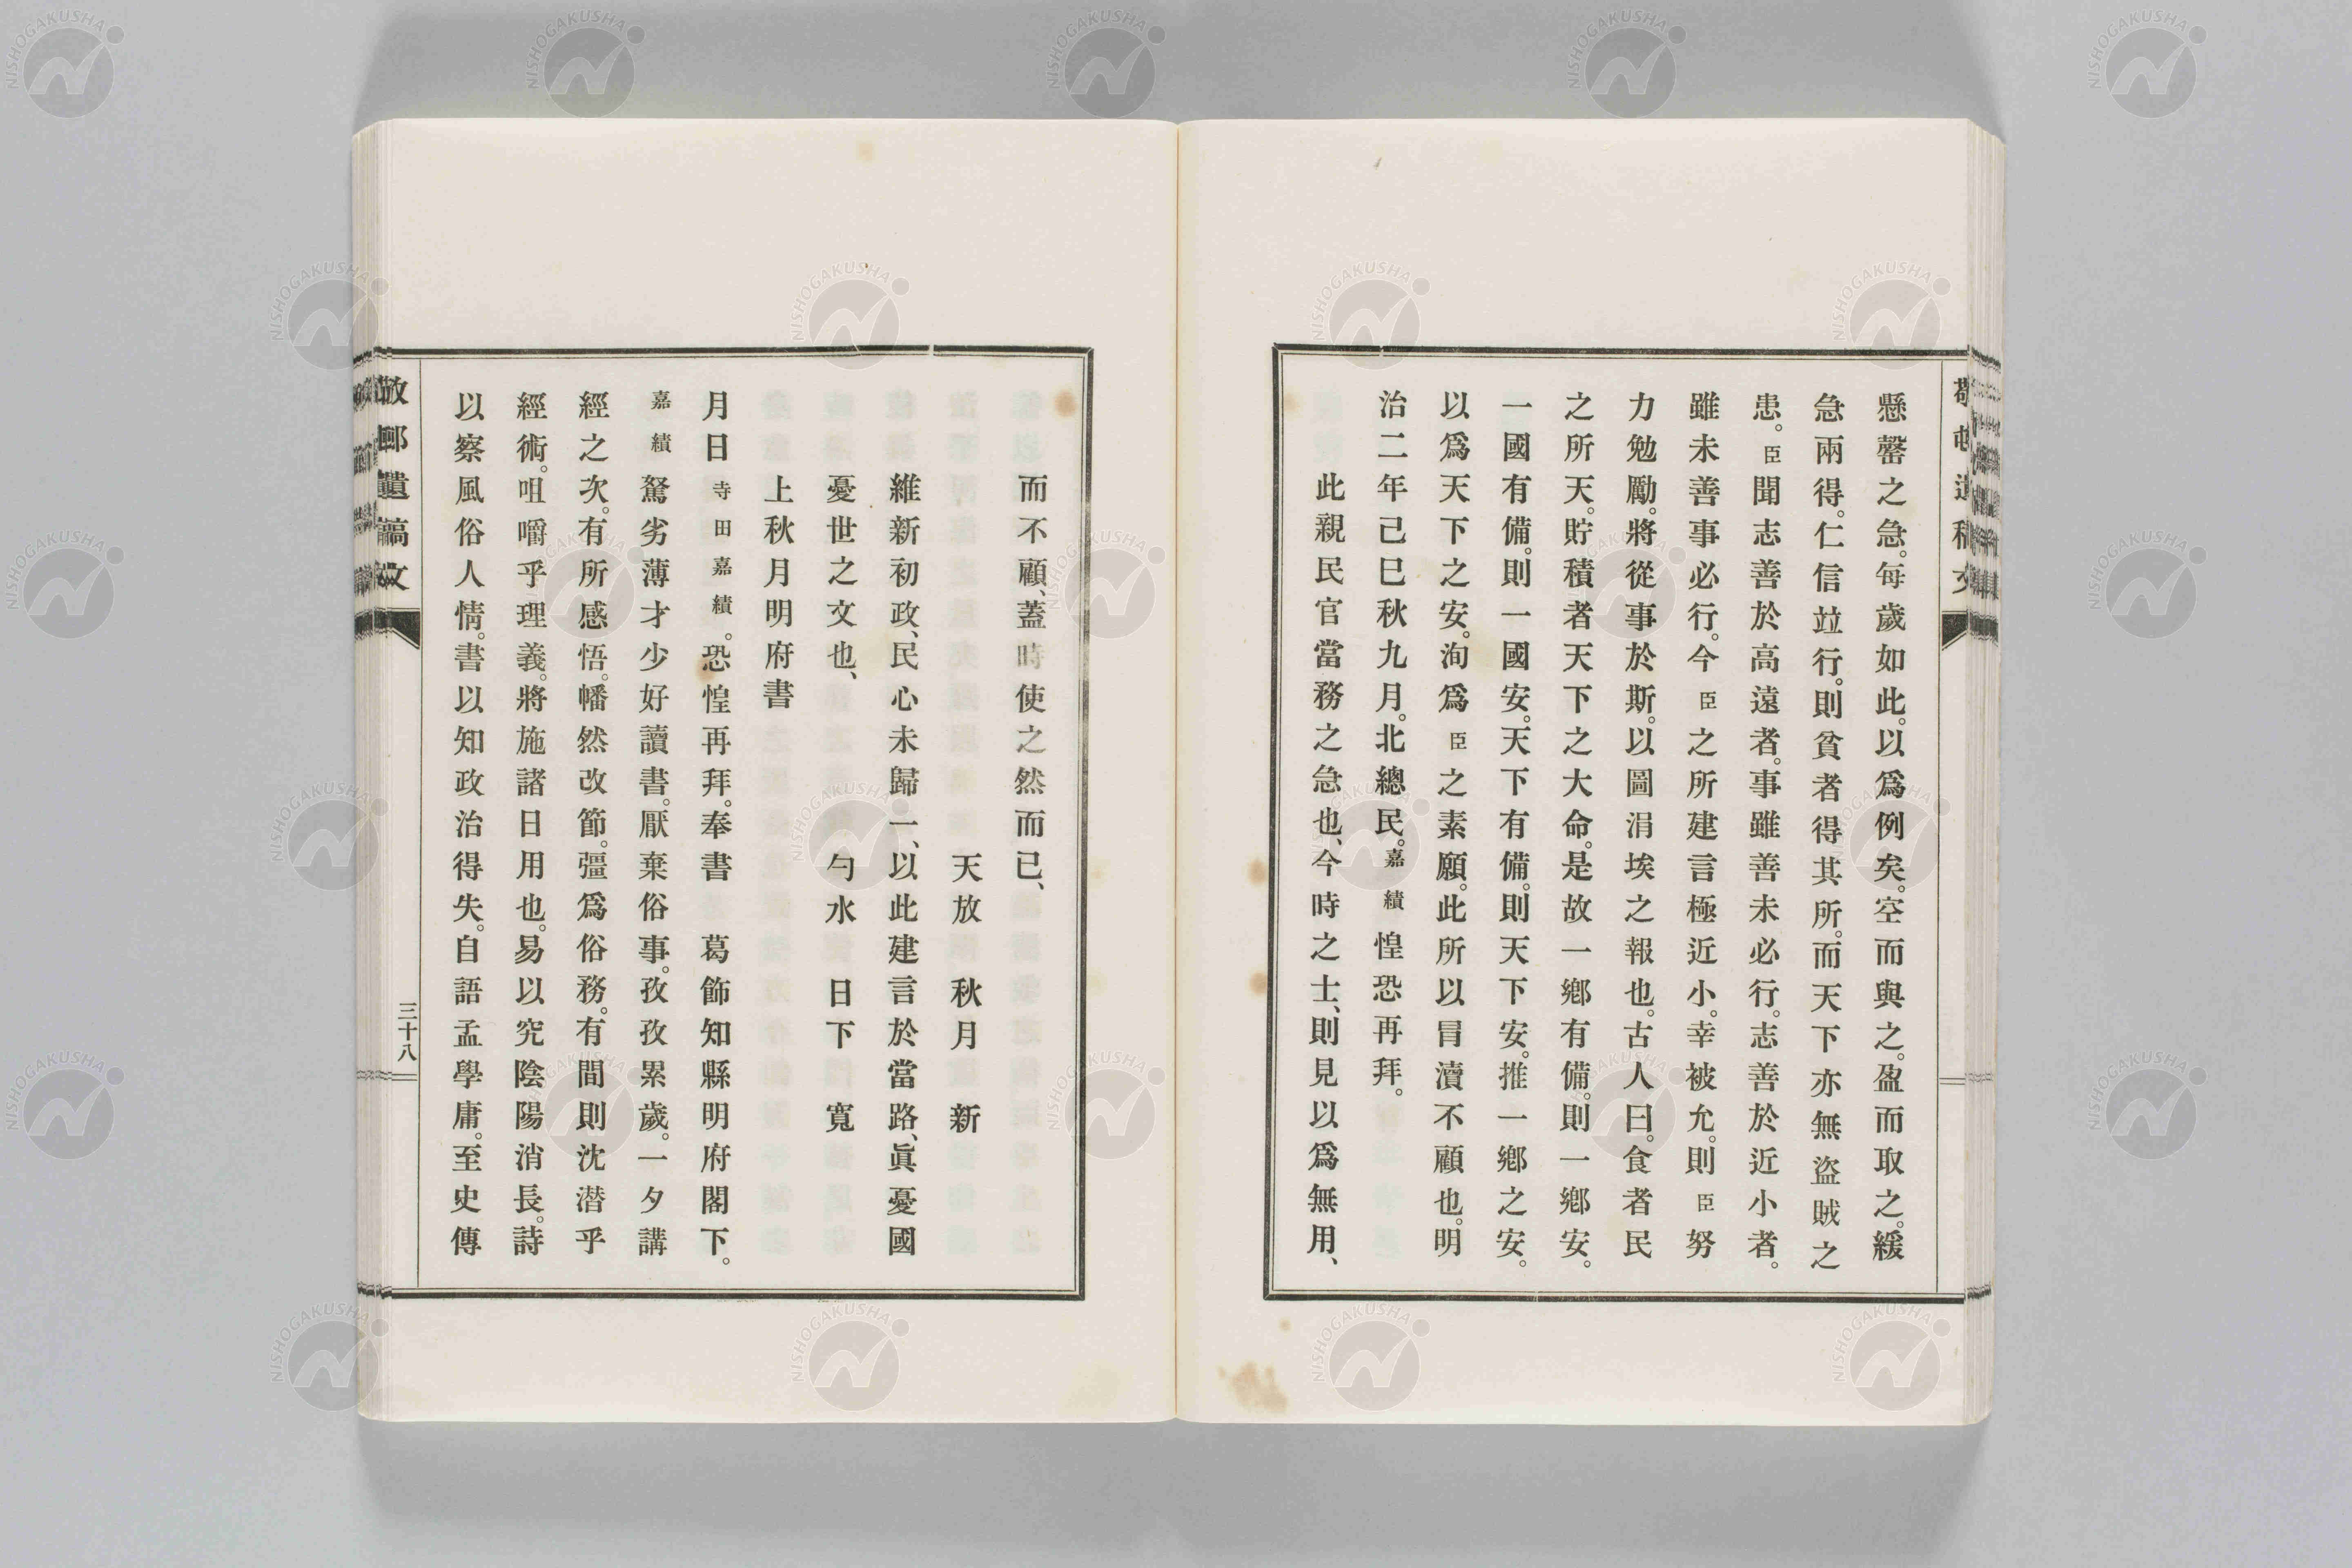 懸罄之急。每歲如此。以爲例矣。空而與之。盈而取之。緩
急兩得。仁信竝行。則貧者得其所。而天下亦無盜賊之
患。臣聞志善於高遠者。事雖善未必行。志善於近小者。
雖未善事必行。今臣之所建言極近小。幸被允。則臣努
力勉勵。將從事於斯。以圖涓埃之報也。古人曰。食者民
之所天。貯積者天下之大命。是故一鄉有備。則一鄉安。
一國有備。則一國安。天下有備。則天下安。推一鄉之安。
以爲天下之安。洵爲臣之素願。此所以冒瀆不顧也。明
治二年己巳秋九月。北總民。嘉績惶恐再拜。
此親民官當務之急也、今時之士、則見以爲無用、
而不顧、蓋時使之然而已、
天放 秋月 新
維新初政、民心未歸一、以此建言於當路、眞憂國
憂世之文也、 勻水 日下 寬
上秋月明府書
月日寺田嘉績。恐惶再拜。奉書 葛飾知縣明府閣下。
嘉績駑劣薄才少好讀書。厭棄俗事。孜孜累歲。一夕講
經之次。有所感悟。幡然改節。彊爲俗務。有間則沈潛乎
經術。咀嚼乎理義。將施諸日用也。易以究陰陽消長。詩
以察風俗人情。書以知政治得失。自語孟學庸。至史傳
敬邨遺稿文
三十八
NISHOGAKUSHA